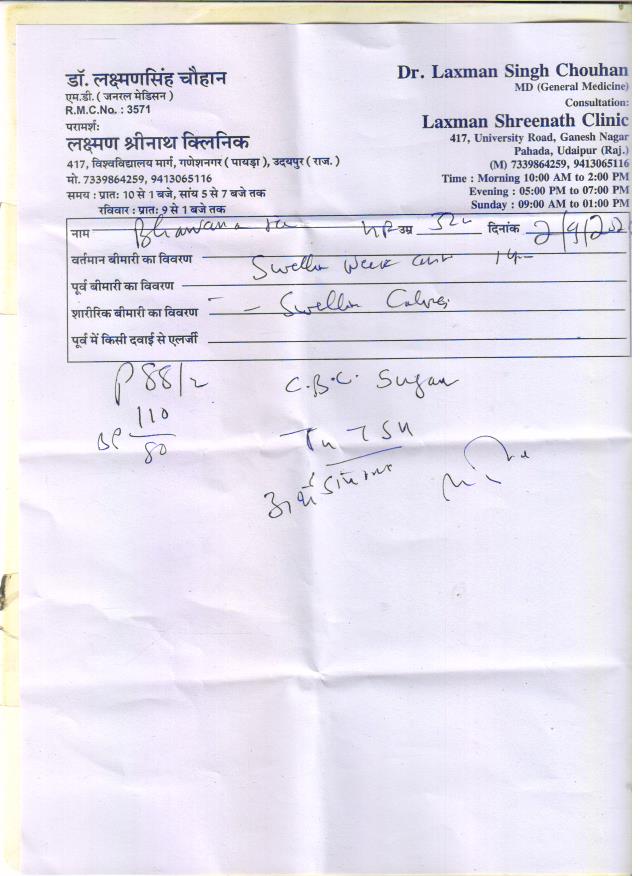 डॉ. लक्ष्मणसिंह चौहान
एम.डी. ( जनरल मेडिसन )
R.M.C.No. : 3571
परामर्श:
लक्ष्मण श्रीनाथ क्लिनिक
417, विश्वविद्यालय मार्ग, गणेशनगर ( पायड़ा ), उदयपुर ( राज. )
मो. 7339864259, 9413065116
समय : प्रात: 10 से 1 बजे, सांय 5 से 7 बजे तक
रविवार : प्रात: 9 से 1 बजे तक
Dr. Laxman Singh Chouhan
MD (General Medicine)
Consultation:
Laxman Shreenath Clinic
417, University Road, Ganesh Nagar
Pahada, Udaipur (Raj.)
(M) 7339864259, 9413065116
Time : Morning 10:00 AM to 2:00 PM
Evening : 05:00 PM to 07:00 PM
Sunday : 09:00 AM to 01:00 PM
नाम Bhawana उम्र 32 दिनांक 2/9/202
वर्तमान बीमारी का विवरण
पूर्व बीमारी का विवरण
शारीरिक बीमारी का विवरण
पूर्व में किसी दवाई से एलर्जी
P 88/
C.B.C. Sugar
BP 110/80